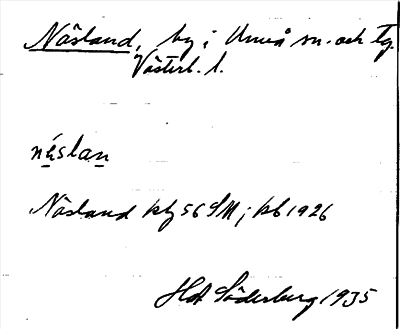 Näsland, by i Umeå sn. och tg.
Västerb. l.
näslan
Näsland ktj 56 SM; kb 1926
Hd Söderberg 1935